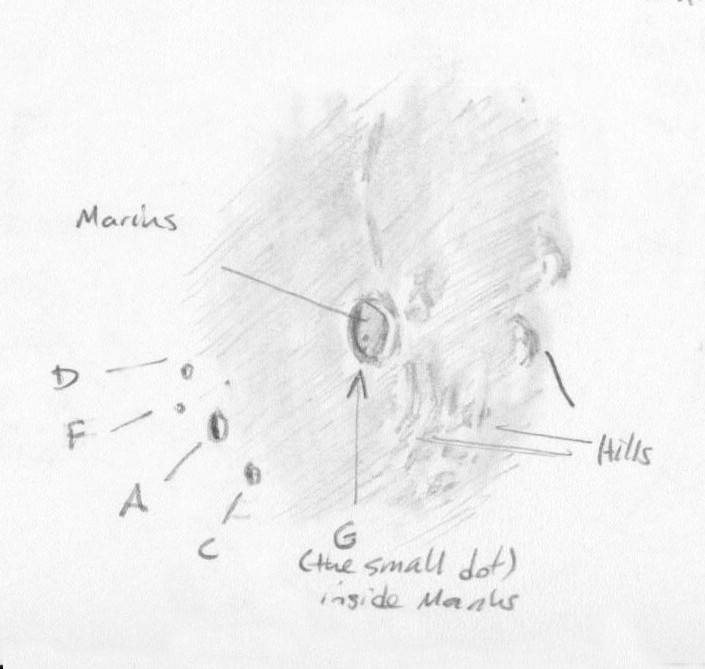 Marius
D
F
A
C
G
(the small dot)
inside Marius
Hills